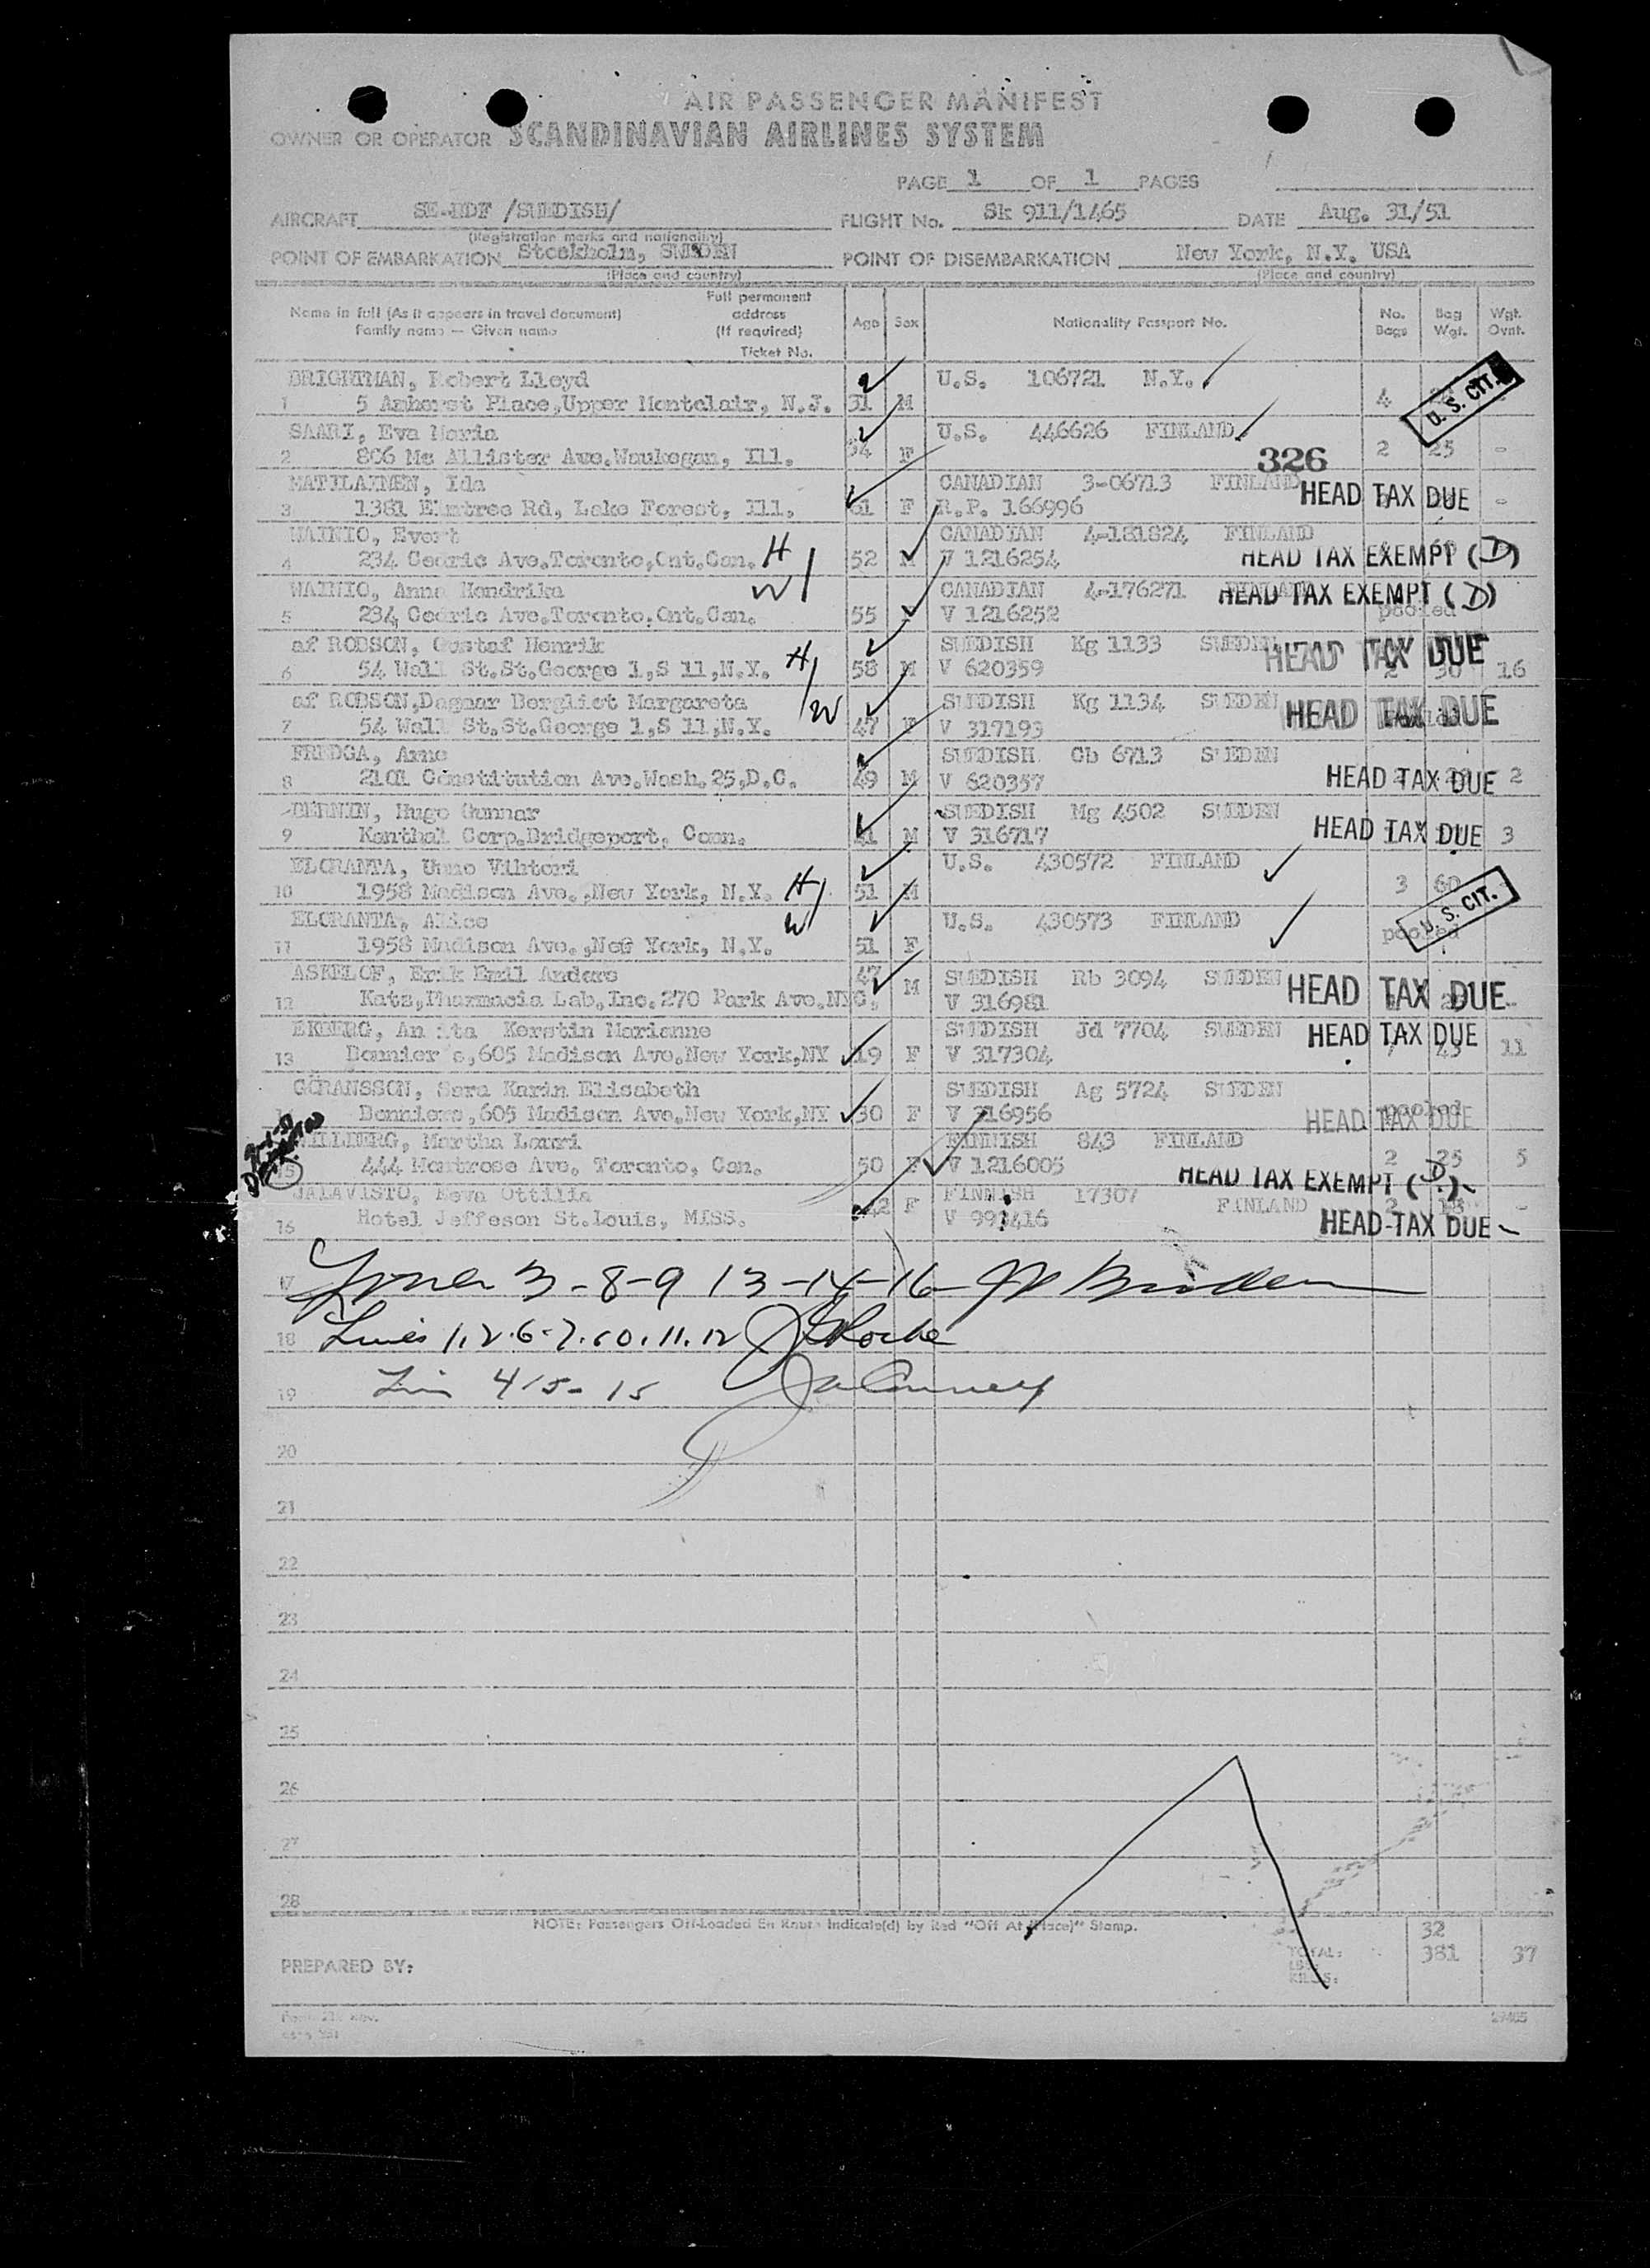 AIR PASSENGER MANIFEST
OWNER OR OPERATOR SCANDINAVIAN AIRLINES SYSTEM
PAGE 1 OF 1 PAGES
AIRCRAFT /SWEDISH/ FLIGHT No. Sk 911/1465 DATE Aug. 31/51
(Registration marks and nationality)
POINT OF EMBARKATION Stockholm, SWEDEN POINT OF DISEMBARKATION New York, N.Y. USA
(Place and country) (Place and country)
Name in full (As it appears in travel document) Family name — Given name
Full permanent address (If required) Ticket No.
Age Sex Nationality Passport No. No. Bags Bag Wgt. Wgt. Ovnt.
BRIGHTMAN, Robert Lloyd U.S. 106721 N.Y.
1 5 Amherst Place,Upper Montclair, N.J. 31 M 4 U.S. CIT.
SAARI, Eva Maria U.S. 446626 FINLAND
2 806 Mc Allister Ave.Waukegan, Ill. 54 F 2 25 -
326
MATILAINEN, Ida CANADIAN 3-06713 FINLAND HEAD TAX DUE -
3 1381 Elmtree Rd, Lake Forest, Ill, 61 F R.P. 166996
WAINIO, Evert CANADIAN 4-181824 FINLAND
4 234 Cedric Ave.Toronto,Ont.Can. H 52 M V 1216254 HEAD TAX EXEMPT (D)
WAINIO, Anna Hendrika W CANADIAN 4-176271 HEAD TAX EXEMPT (D)
5 234 Cedric Ave.Toronto,Ont.Can. 55 V 1216252 pooled
af ROBSON, Gustaf Henrik SWEDISH Kg 1133 SWEDEN HEAD TAX DUE
6 54 Wall St.St.George 1,S 11,N.Y. H 58 M V 620359 2 30 16
af ROBSON,Dagmar Bergliot Margareta W SWEDISH Kg 1134 SWEDEN HEAD TAX DUE
7 54 Wall St.St.George 1,S 11,N.Y. 47 F V 317193
FREDGA, Arne SWEDISH Gb 6713 SWEDEN
8 2101 Constitution Ave.Wash.25,D.C. 49 M V 620357 HEAD TAX DUE 2
BERNIN, Hugo Gunnar SWEDISH Mg 4502 SWEDEN
9 Kanthal Corp.Bridgeport, Conn. 41 M V 316717 HEAD TAX DUE 3
ELORANTA, Uuno Vihtori U.S. 430572 FINLAND
10 1958 Madison Ave.,New York, N.Y. H 51 M 3 60
ELORANTA, Alice W U.S. 430573 FINLAND U.S. CIT.
11 1958 Madison Ave.,NeG York, N.Y. 51 F pooled
ASKELOF, Erik Emil Anders 47 M SWEDISH Rb 3094 SWEDEN HEAD TAX DUE -
12 Katz,Pharmacia Lab,Inc.270 Park Ave.NYC. V 316981
EKBERG, Anita Kerstin Marianne SWEDISH Jd 7704 SWEDEN HEAD TAX DUE
13 Bonnier's,605 Madison Ave.New York,NY 19 F V 317304 7 43 11
GÖRANSSON, Sara Karin Elisabeth SWEDISH Ag 5724 SWEDEN
14 Bonniers,605 Madison Ave.New York,NY 30 F V 316956 pooled HEAD TAX DUE
Martha Lauri FINNISH 843 FINLAND
15 444 Montrose Ave. Toronto, Can. 50 F V 1216005 2 25 5
HEAD TAX EXEMPT (D)
JALAVISTO, Eeva Ottilia FINNISH 17307 FINLAND 2 18 -
16 Hotel Jeffeson St.Louis, MISS. 42 F V 993416 HEAD TAX DUE
17 Lines 3-8-9 13-14-16
18 Lines 1.2.6-7.10.11.12
19 4/5-15
20
21
22
23
24
25
26
27
28
NOTE: Passengers Off-Loaded En Route Indicate(d) by Red "Off At (Place)" Stamp.
32
PREPARED BY: TOTAL: 381 37
29405